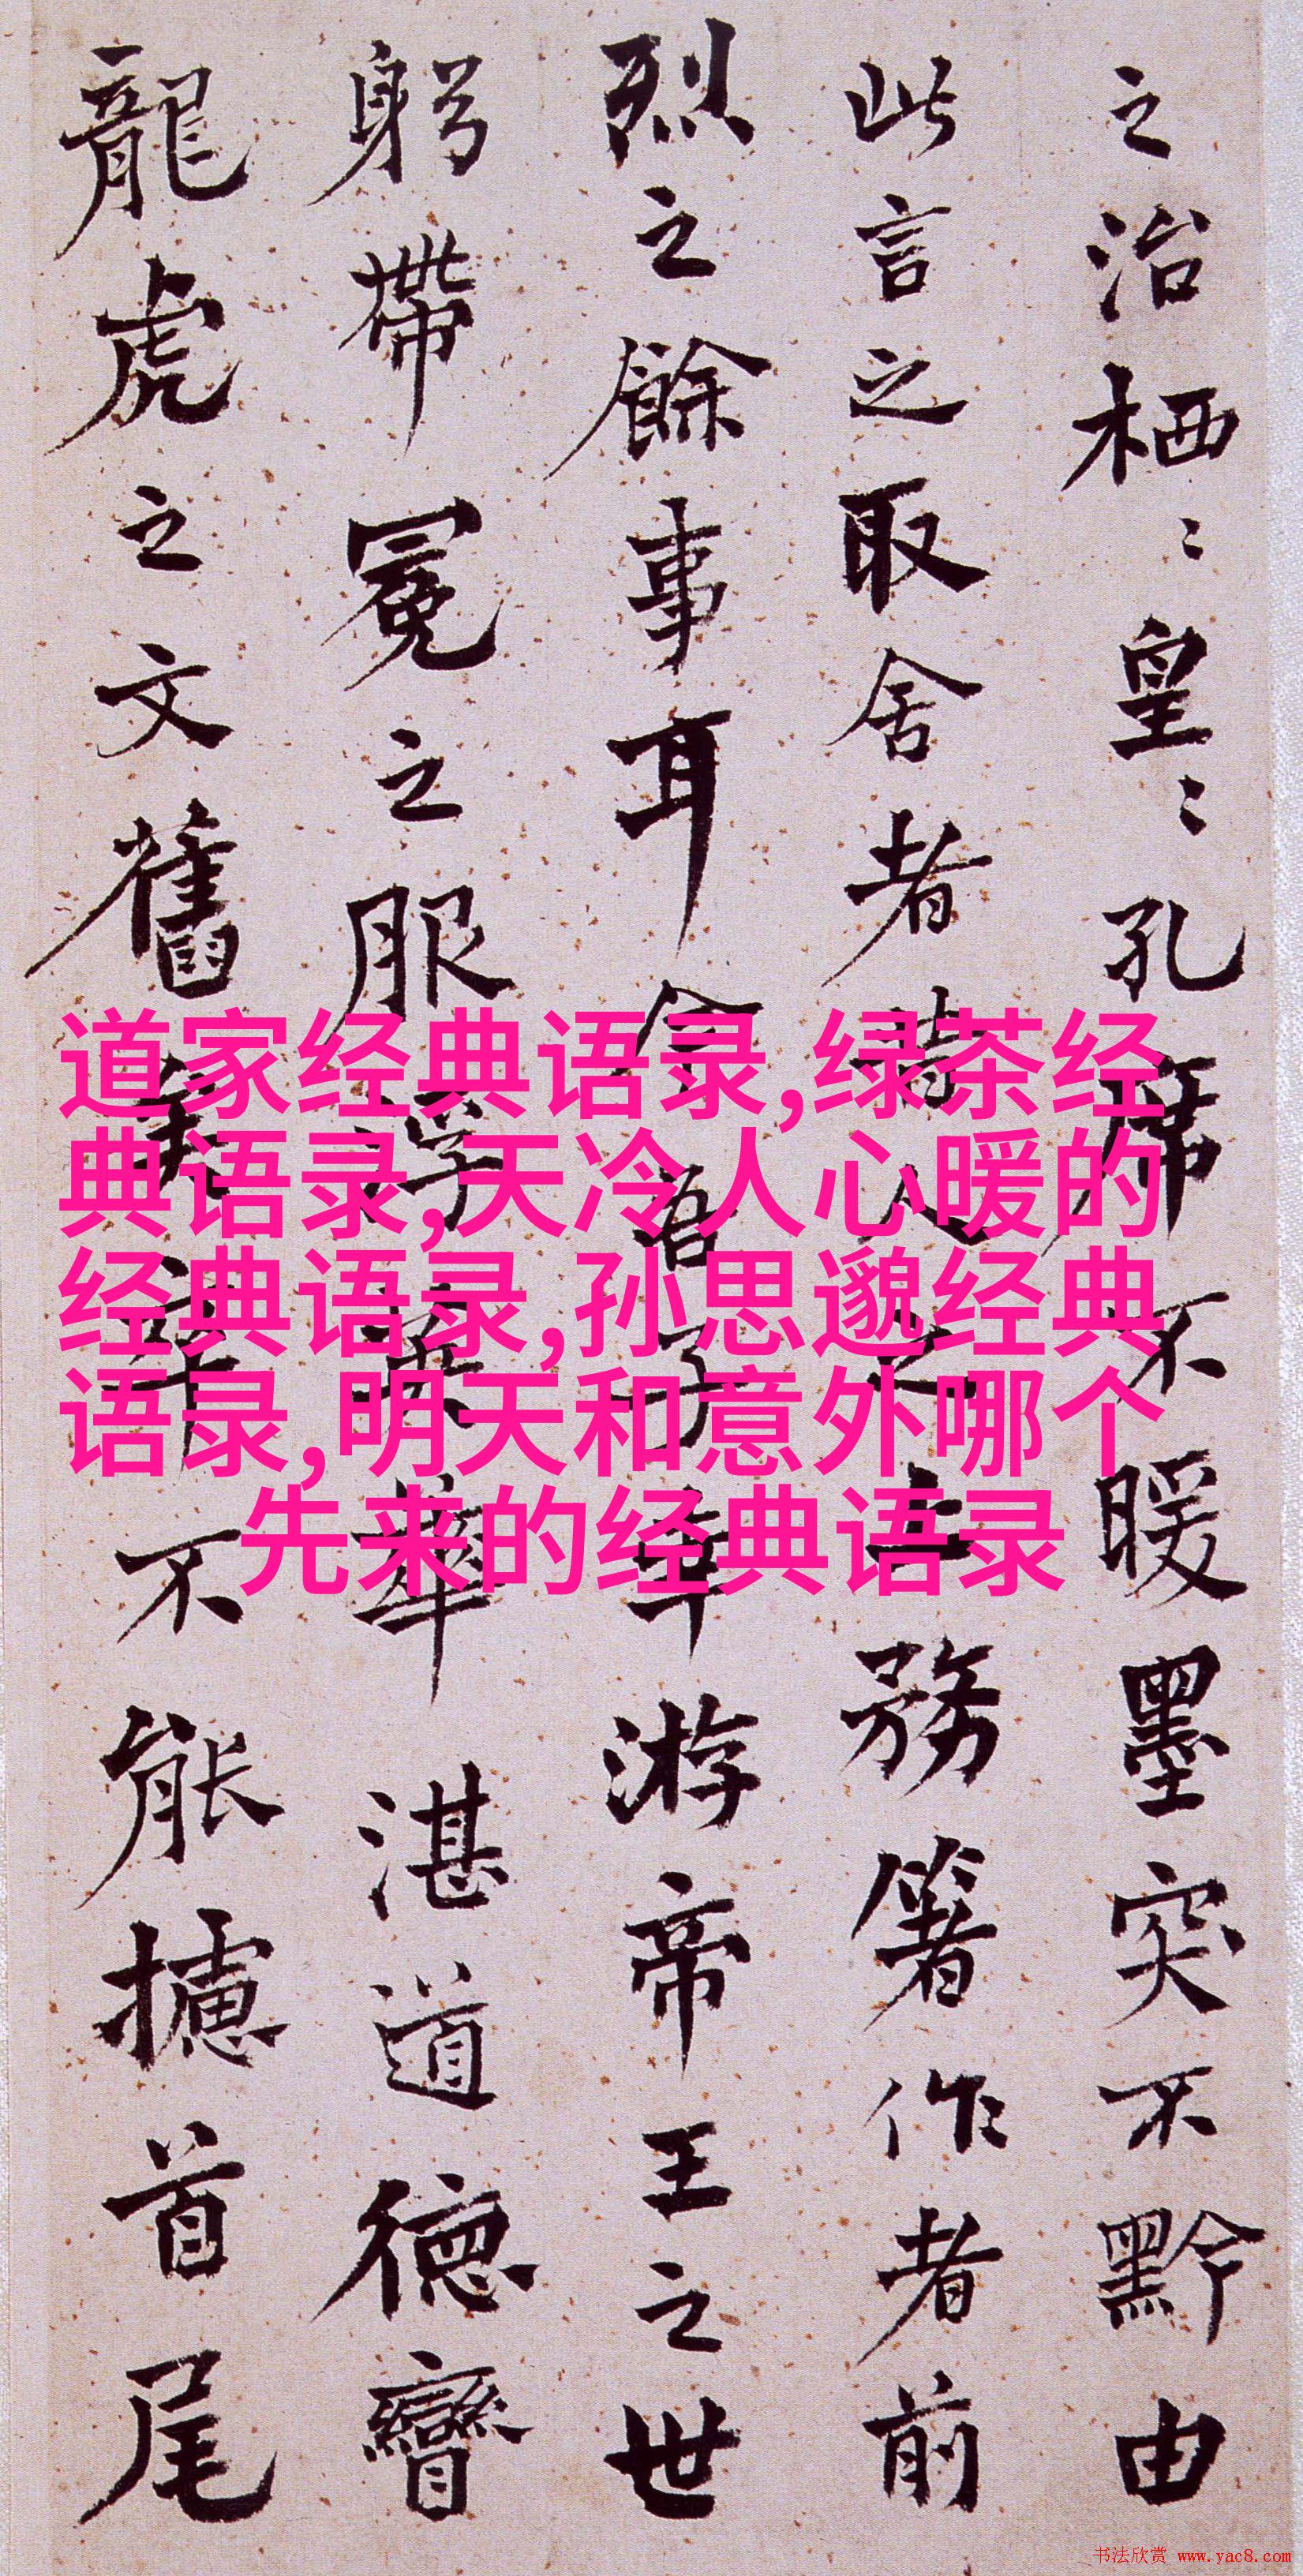 之治栖〻皇〻孔席不暖墨突不黔由
此言之取舍者昔人之上務箸作者前
烈之餘事耳今吾子幸游帝王之世
躬帶冕之服浮英華湛道德矕
龍虎之文舊矣卒不能攄首尾
道家经典语录,绿茶经
典语录,天冷人心暖的
经典语录,孙思邈经典
语录,明天和意外哪个
先来的经典语录
书法欣赏 www.yac8.com